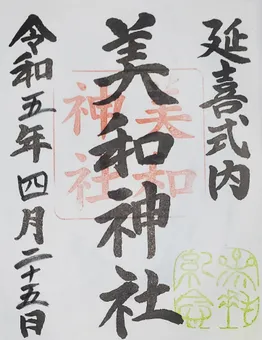 延喜式内
美和神社
令和五年四月二十五日
美和
神社
参拝
記念